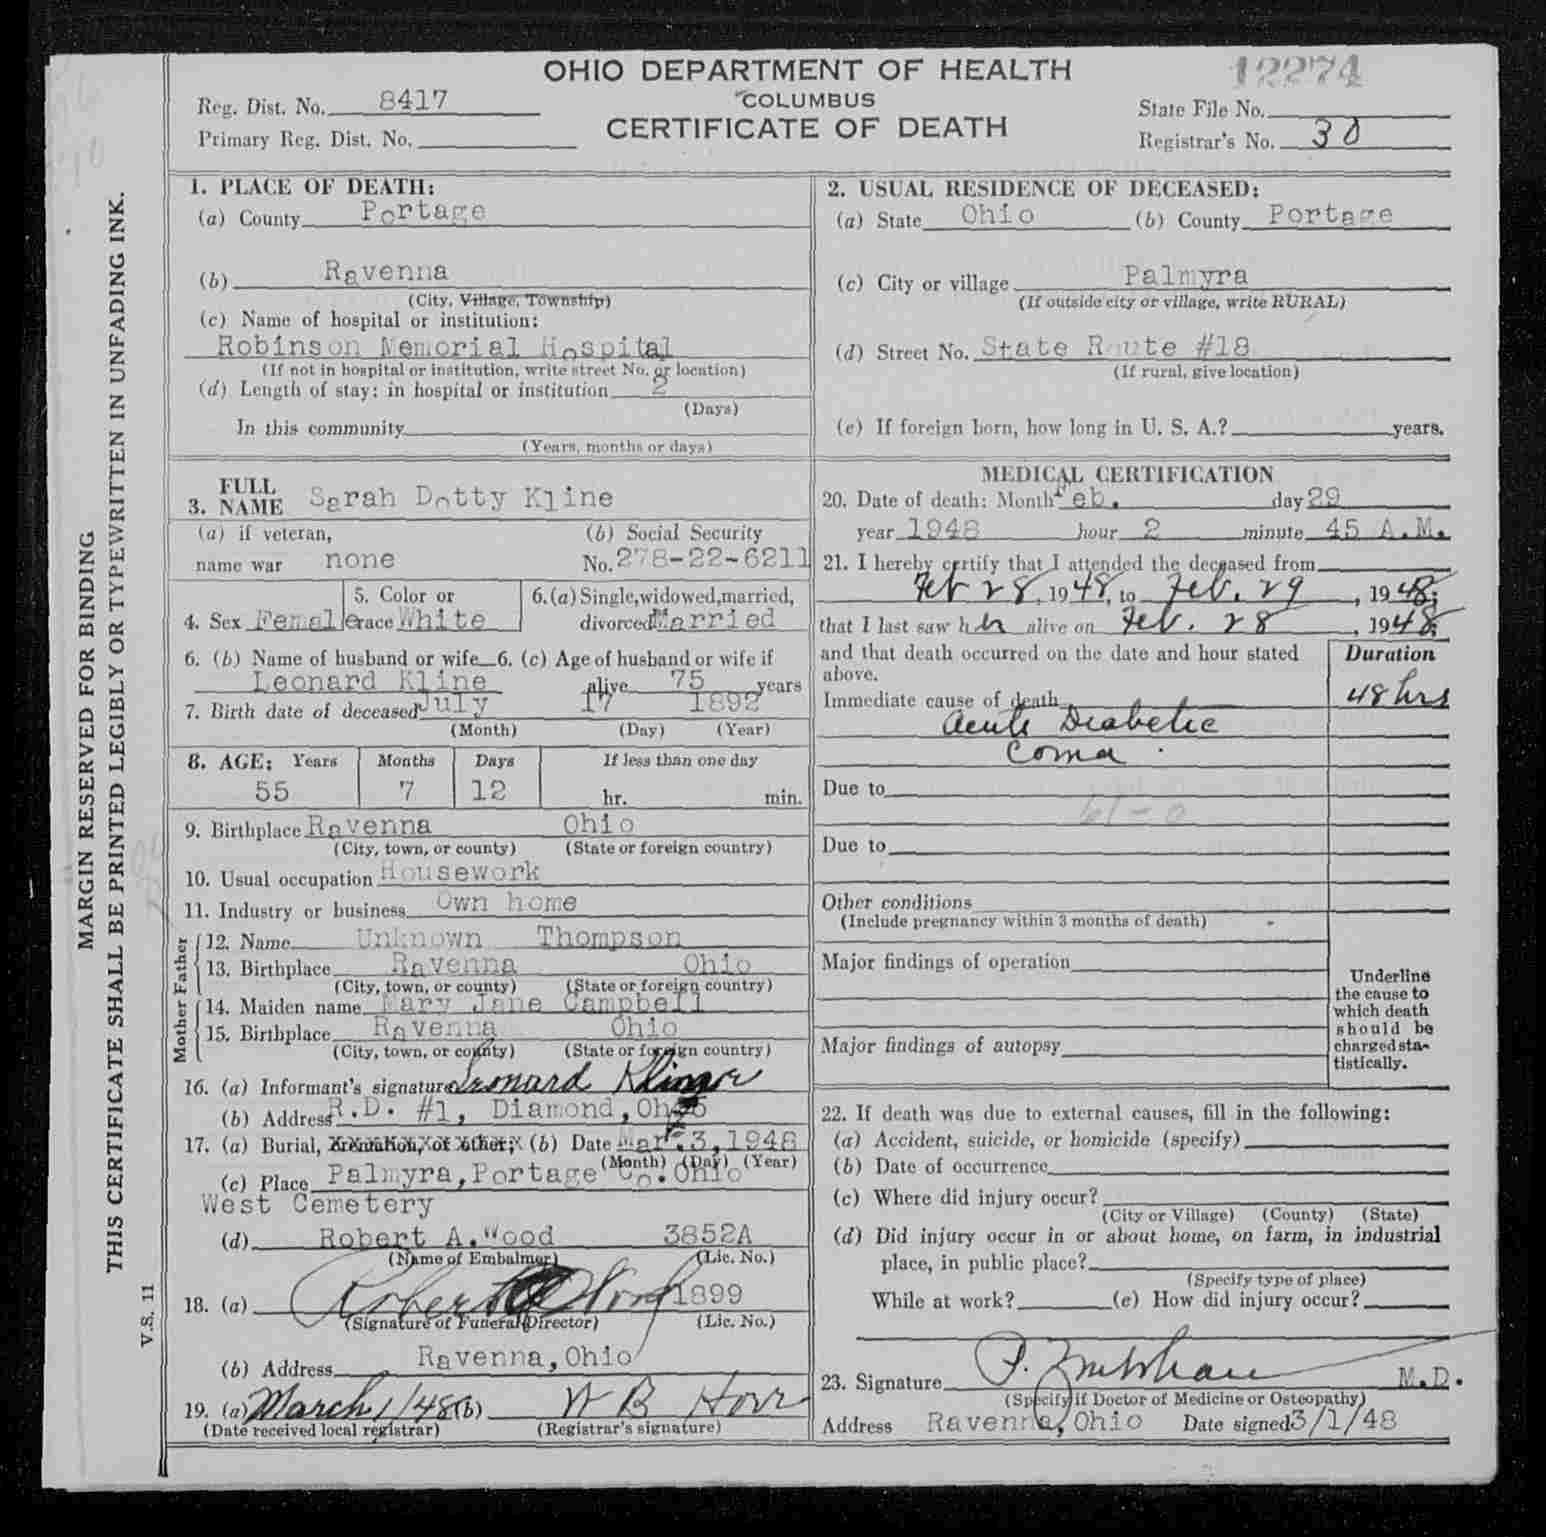 12274
OHIO DEPARTMENT OF HEALTH
COLUMBUS
CERTIFICATE OF DEATH
Reg. Dist. No. 8417
Primary Reg. Dist. No.
State File No.
Registrar's No. 30
MARGIN RESERVED FOR BINDING
THIS CERTIFICATE SHALL BE PRINTED LEGIBLY OR TYPEWRITTEN IN UNFADING INK.
V.S. 11
1. PLACE OF DEATH:
(a) County Portage
(b) Ravenna
(City, Village, Township)
(c) Name of hospital or institution:
Robinson Memorial Hospital
(If not in hospital or institution, write street No. or location)
(d) Length of stay: in hospital or institution 2
(Days)
In this community
(Years, months or days)
2. USUAL RESIDENCE OF DECEASED:
(a) State Ohio (b) County Portage
(c) City or village Palmyra
(If outside city or village, write RURAL)
(d) Street No. State Route #18
(If rural, give location)
(e) If foreign born, how long in U. S. A.? years.
3. FULL NAME Sarah Dotty Kline
(a) if veteran, (b) Social Security
name war none No. 278-22-6211
4. Sex Female 5. Color or race White 6. (a) Single, widowed, married, divorced Married
6. (b) Name of husband or wife 6. (c) Age of husband or wife if
Leonard Kline alive 75 years
7. Birth date of deceased July 17 1892
(Month) (Day) (Year)
8. AGE: Years Months Days If less than one day
55 7 12 hr. min.
9. Birthplace Ravenna Ohio
(City, town, or county) (State or foreign country)
10. Usual occupation Housework
11. Industry or business Own home
Father
12. Name Unknown Thompson
13. Birthplace Ravenna Ohio
(City, town, or county) (State or foreign country)
Mother
14. Maiden name Mary Jane Campbell
15. Birthplace Ravenna Ohio
(City, town, or county) (State or foreign country)
16. (a) Informant's signature Leonard
(b) Address R.D. #1, Diamond, Ohio
17. (a) Burial, cremation, or other; (b) Date Mar. 3, 1948
(Month) (Day) (Year)
(c) Place Palmyra, Portage Co. Ohio
West Cemetery
(d) Robert A. Wood 3852A
(Name of Embalmer) (Lic. No.)
18. (a) Robert A Wood 1899
(Signature of Funeral Director) (Lic. No.)
(b) Address Ravenna, Ohio
19. (a) March 1/48 (b) W B Horr
(Date received local registrar) (Registrar's signature)
MEDICAL CERTIFICATION
20. Date of death: Month Feb. day 29
year 1948 hour 2 minute 45 A.M.
21. I hereby certify that I attended the deceased from
Feb 28, 1948, to Feb. 29, 1948;
that I last saw her alive on Feb. 28, 1948;
and that death occurred on the date and hour stated
above.
Duration
Immediate cause of death 48 hrs
Acute Diabetic
Coma.
Due to
61-0
Due to
Other conditions
(Include pregnancy within 3 months of death)
Major findings of operation
Major findings of autopsy
Underline
the cause to
which death
should be
charged sta-
tistically.
22. If death was due to external causes, fill in the following:
(a) Accident, suicide, or homicide (specify)
(b) Date of occurrence
(c) Where did injury occur?
(City or Village) (County) (State)
(d) Did injury occur in or about home, on farm, in industrial
place, in public place?
(Specify type of place)
While at work? (e) How did injury occur?
23. Signature M.D.
(Specify if Doctor of Medicine or Osteopathy)
Address Ravenna, Ohio Date signed 3/1/48